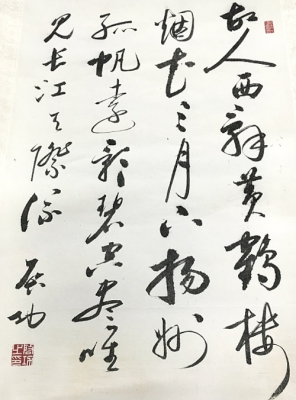 故人西辞黄鹤楼
烟花三月下揚州
孤帆遠影碧空尽唯
见长江天際流 启功